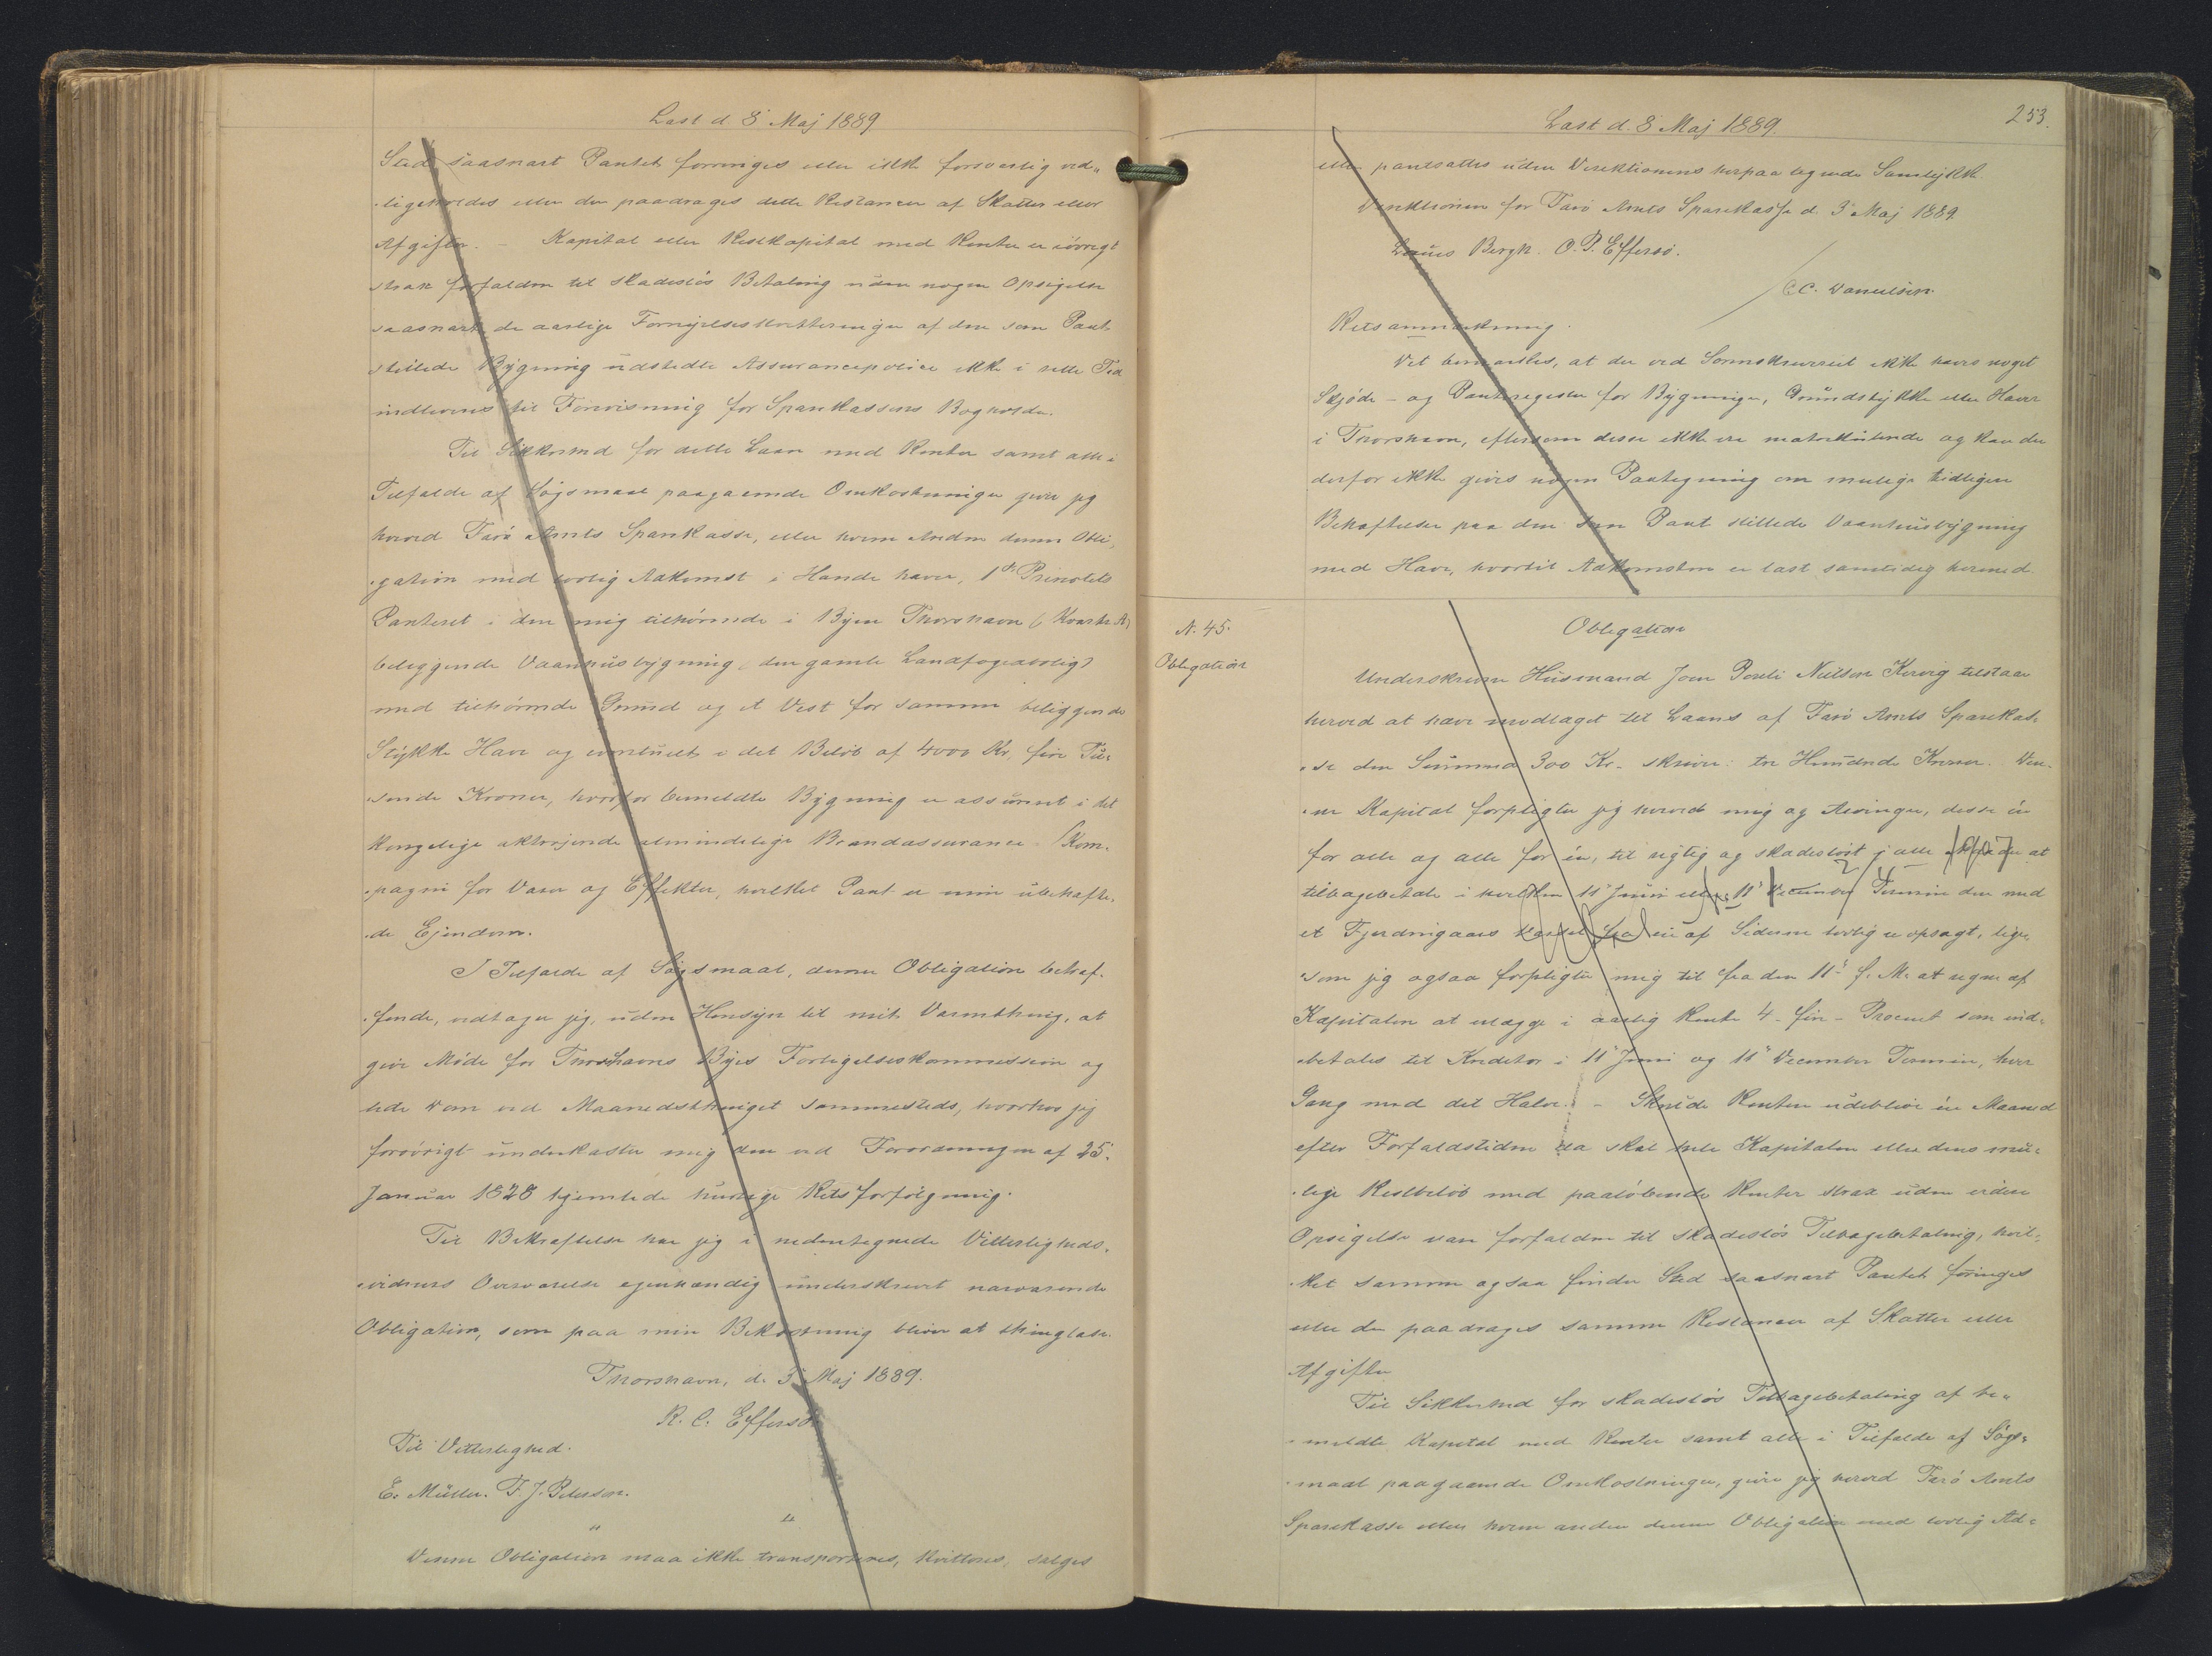 Læst d. 8' Maj 1889
Sted saasnart Pantet forringes eller ikke forsvarlig ved„
„ligeholdes eller der paadrages dette Restancer af Skatter eller
Afgifter. – Kapital eller Restkapital med Renter er iøvrigt
strax forfalden til skadesløs Betaling uden nogen Opsigelse
saasnart de aarlige Fornyelseskvitteringer af den som Pant
stillede Bygning udstedte Assurancepolice ikke i rette Tid
indleveres til Forevisning for Sparekassens Bogholder.
Til Sikkerhed for dette Laan med Renter samt alle i
Tilfælde af Søgsmaal paagaaende Omkostninger giver jeg
herved Færø Amts Sparekasse, eller hvem Anden denne Obli„
„gation med lovlig Adkomst i Hænde haver, 1ste Prioritets
Panteret i den mig tilhørende i Byen Thorshavn (Kvarter A)
beliggende Vaanhusbygning (den gamle Landfogedbolig)
med tilhørende Grund og et Vest for samme beliggende
Stykke Have og eventuelt i det Beløb af 4000 Kr, fire Tu„
„sende Kroner, hvorfor bemeldte Bygning er assureret i det
kongelige oktroierede almindelige Brandassurance Kom„
„pagni for Varer og Effekter, hvilket Pant er min ubehæfte„
„de Ejendom.
I Tilfælde af Søgsmaal, denne Obligation betræf„
„fende, vedtager jeg, uden Hensyn til mit Værnething, at
give Møde for Thorshavns Byes Forligelseskommission og
lide Dom ved Maanedsthinget sammesteds, hvorhos jeg
forøvrigt underkaster mig den ved Forordningen af 25.
Januar 1828 hjemlede hurtige Retsforfølgning.
Til Bekræftelse har jeg i nedentegnede Vitterligheds„
„vidners Overværelse egenhændig underskrevet nærværende
Obligation, som paa min Bekostning bliver at thinglæse.
Thorshavn, d. 3' Maj 1889.
R. C. Effersø
Til Vitterlighed.
E. Müller. F. J. Petersen.
" "
Denne Obligation maa ikke transporteres, kvitteres, sælges
Læst d. 8 Maj 1889.
253.
eller pantsættes uden Direktionens herpaa tegnede Samtykke
Direktionen for Færø Amts Sparekasse d. 3' Maj 1889
Louis Bergh. O. P. Effersø.
C. C. Danielsen.
Retsanmærkning.
Det bemærkes, at der ved Sorenskriveriet ikke haves noget
Skjøde- og Panteregister for Bygninger, Grundstykker eller Haver
i Thorshavn, eftersom disse ikke ere matrikulerede og kan der
derfor ikke gives nogen Paategning om mulige tidligere
Behæftelser paa den som Pant stillede Vaanhusbygning
med Have, hvortil Adkomsten er læst samtidig hermed
N. 45.
Obligation
Obligation
Underskrevne Husmand Joen Poul Nielsen tilstaar
herved at have modtaget til Laans af Færø Amts Sparekas„
„se den Summa 300 Kr. skriver: tre Hundrede Kroner. Den„
„ne Kapital forpligter jeg herved mig og Arvinger, disse én
for alle og alle for én, til rigtig og skadesløst i alle at
tilbagebetale i hvilken 11' Juni eller 11' December Termin der med
et Fjerdingaars Varsel fra en af Siderne lovlig er opsagt, lige„
„som jeg ogsaa forpligter mig til fra den 11' f. M. at regne af
Kapitalen at erlægge i aarlig Rente 4 – fire – Procent som ind„
„betales til Kreditor i 11' Juni og 11' December Termin, hver
Gang med det Halve. – Skulde Renten udeblive én Maaned
efter Forfaldstiden da skal hele Kapitalen eller dens mu„
„lige Restbeløb med paaløbende Renter strax uden videre
Opsigelse være forfalden til skadesløs Tilbagebetaling, hvil„
„ket samme ogsaa finder Sted saasnart Pantet foringes
eller der paadrages samme Restancer af Skatter eller
Afgifter
Til Sikkerhed for skadesløs Tilbagebetaling af be„
„meldte Kapital med Renter samt alle i Tilfælde af Søgs„
„maal paagaaende Omkostninger, giver jeg herved Færø Amts
Sparekasse eller hvem anden denne Obligation med lovlig Ad„